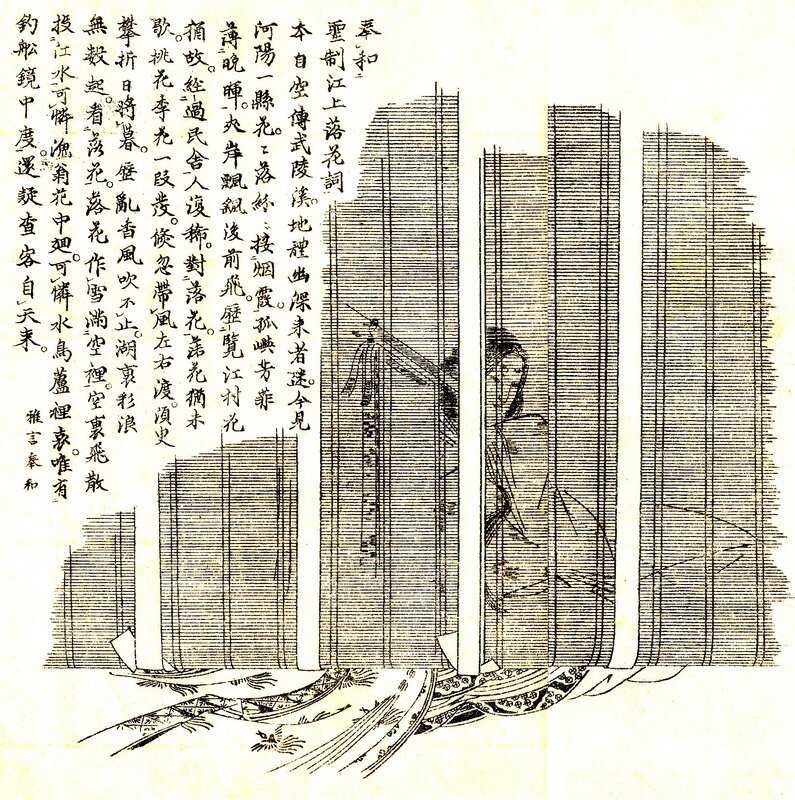 奉和
聖制江上落花詞
本自空傳武陵溪。地禮幽深来者迷。今見
河陽一縣花。〻落紛〻接烟霞。孤嶼芳菲
薄晚暉。夾岸飄颻後前飛。歷覽江村花
猶故。經過民舍人復稀。對落花。落花猶未
歇。桃花李花一段發。倐忽帶風左右渡。須臾
攀折日將暮。歷亂香風吹不止。湖裏彩浪
無數起。看落花。落花作雪滿空裡。空裏飛散
投江水。可憐漁翁花中廻。可憐水鳥蘆裡哀。唯有
釣船鏡中度。還疑査客自天来。
雅言奉和